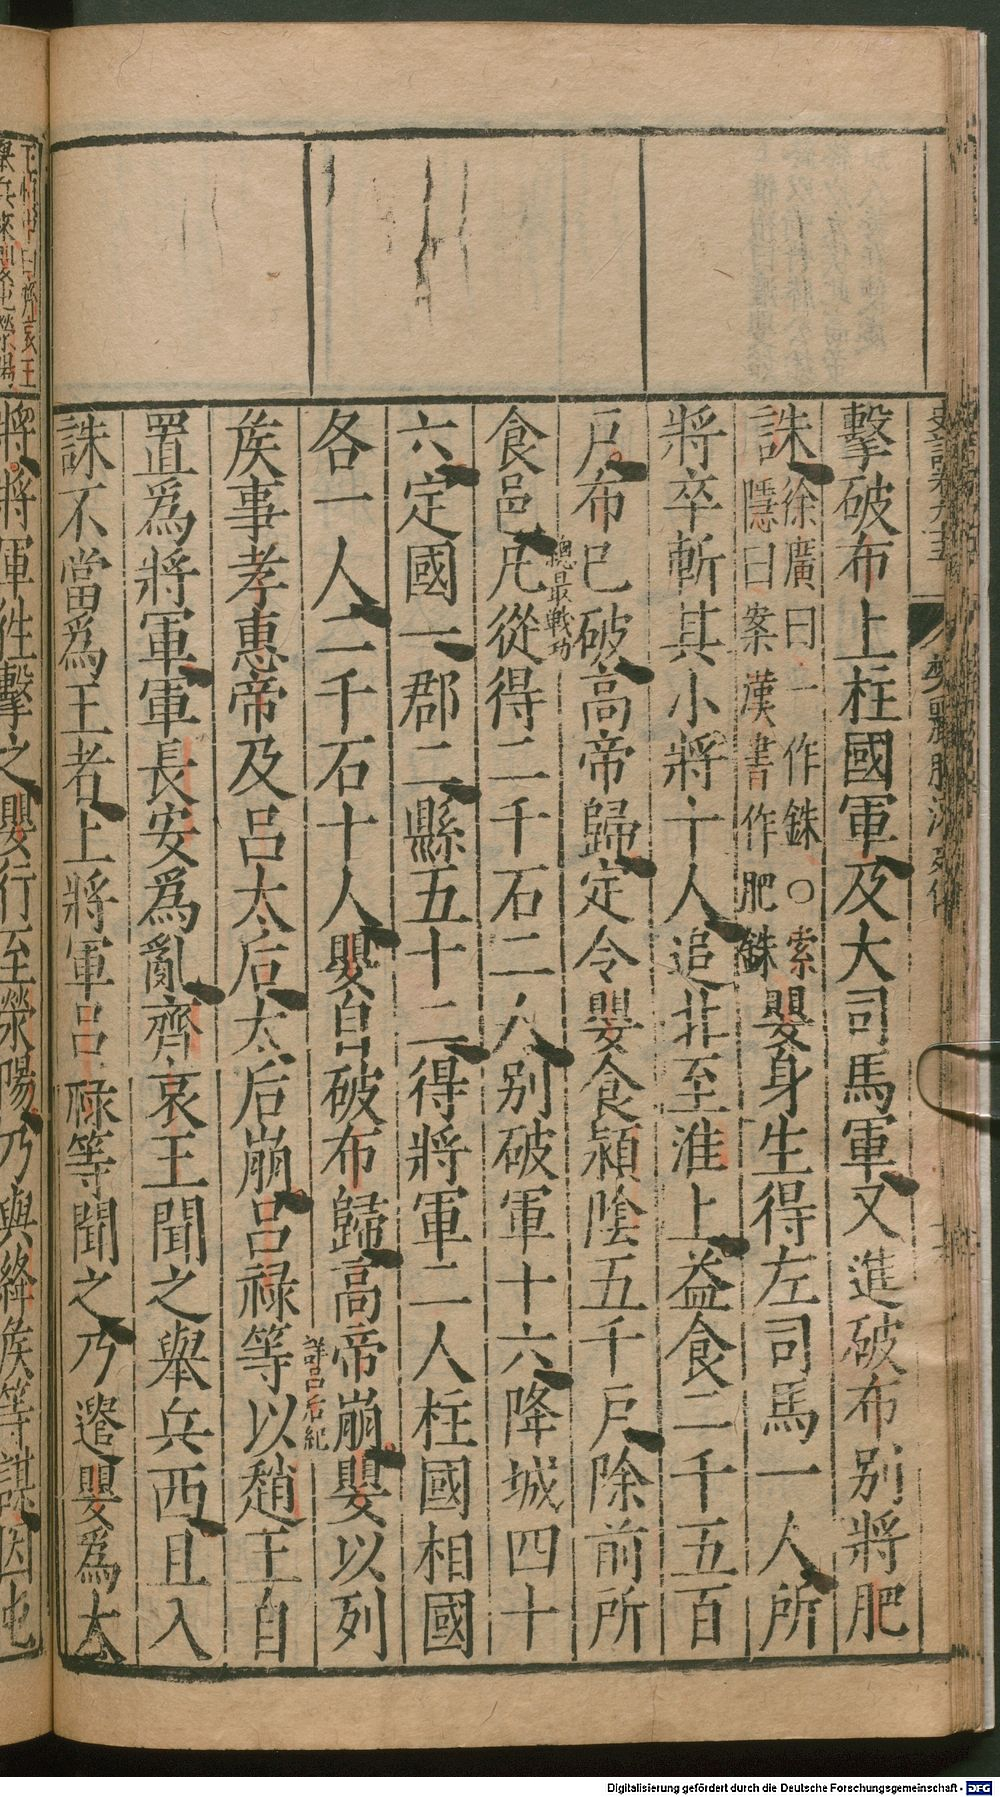 史記卷九十五 樊酈滕灌列傳
擊破布上柱國軍及大司馬軍又進破布別將肥
誅徐廣曰一作銖○索隱曰案漢書作肥銖嬰身生得左司馬一人所
將卒斬其小將十人追北至淮上益食二千五百
戶布已破高帝歸定令嬰食潁陰五千戶除前所
總最戰功
食邑凡從得二千石二人別破軍十六降城四十
六定國一郡二縣五十二得將軍二人柱國相國
各一人二千石十人嬰自破布歸高帝崩嬰以列
詳呂后紀
矦事孝惠帝及呂太后太后崩呂祿等以趙王自
置爲將軍軍長安爲亂齊哀王聞之舉兵西且入
誅不當爲王者上將軍呂祿等聞之乃遣嬰爲大
將將軍徃擊之嬰行至滎陽乃與絳矦等謀因屯
Digitalisierung gefördert durch die Deutsche Forschungsgemeinschaft - DFG